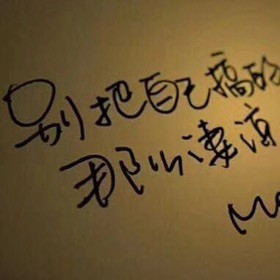 别把自己搞的
那么凄凉